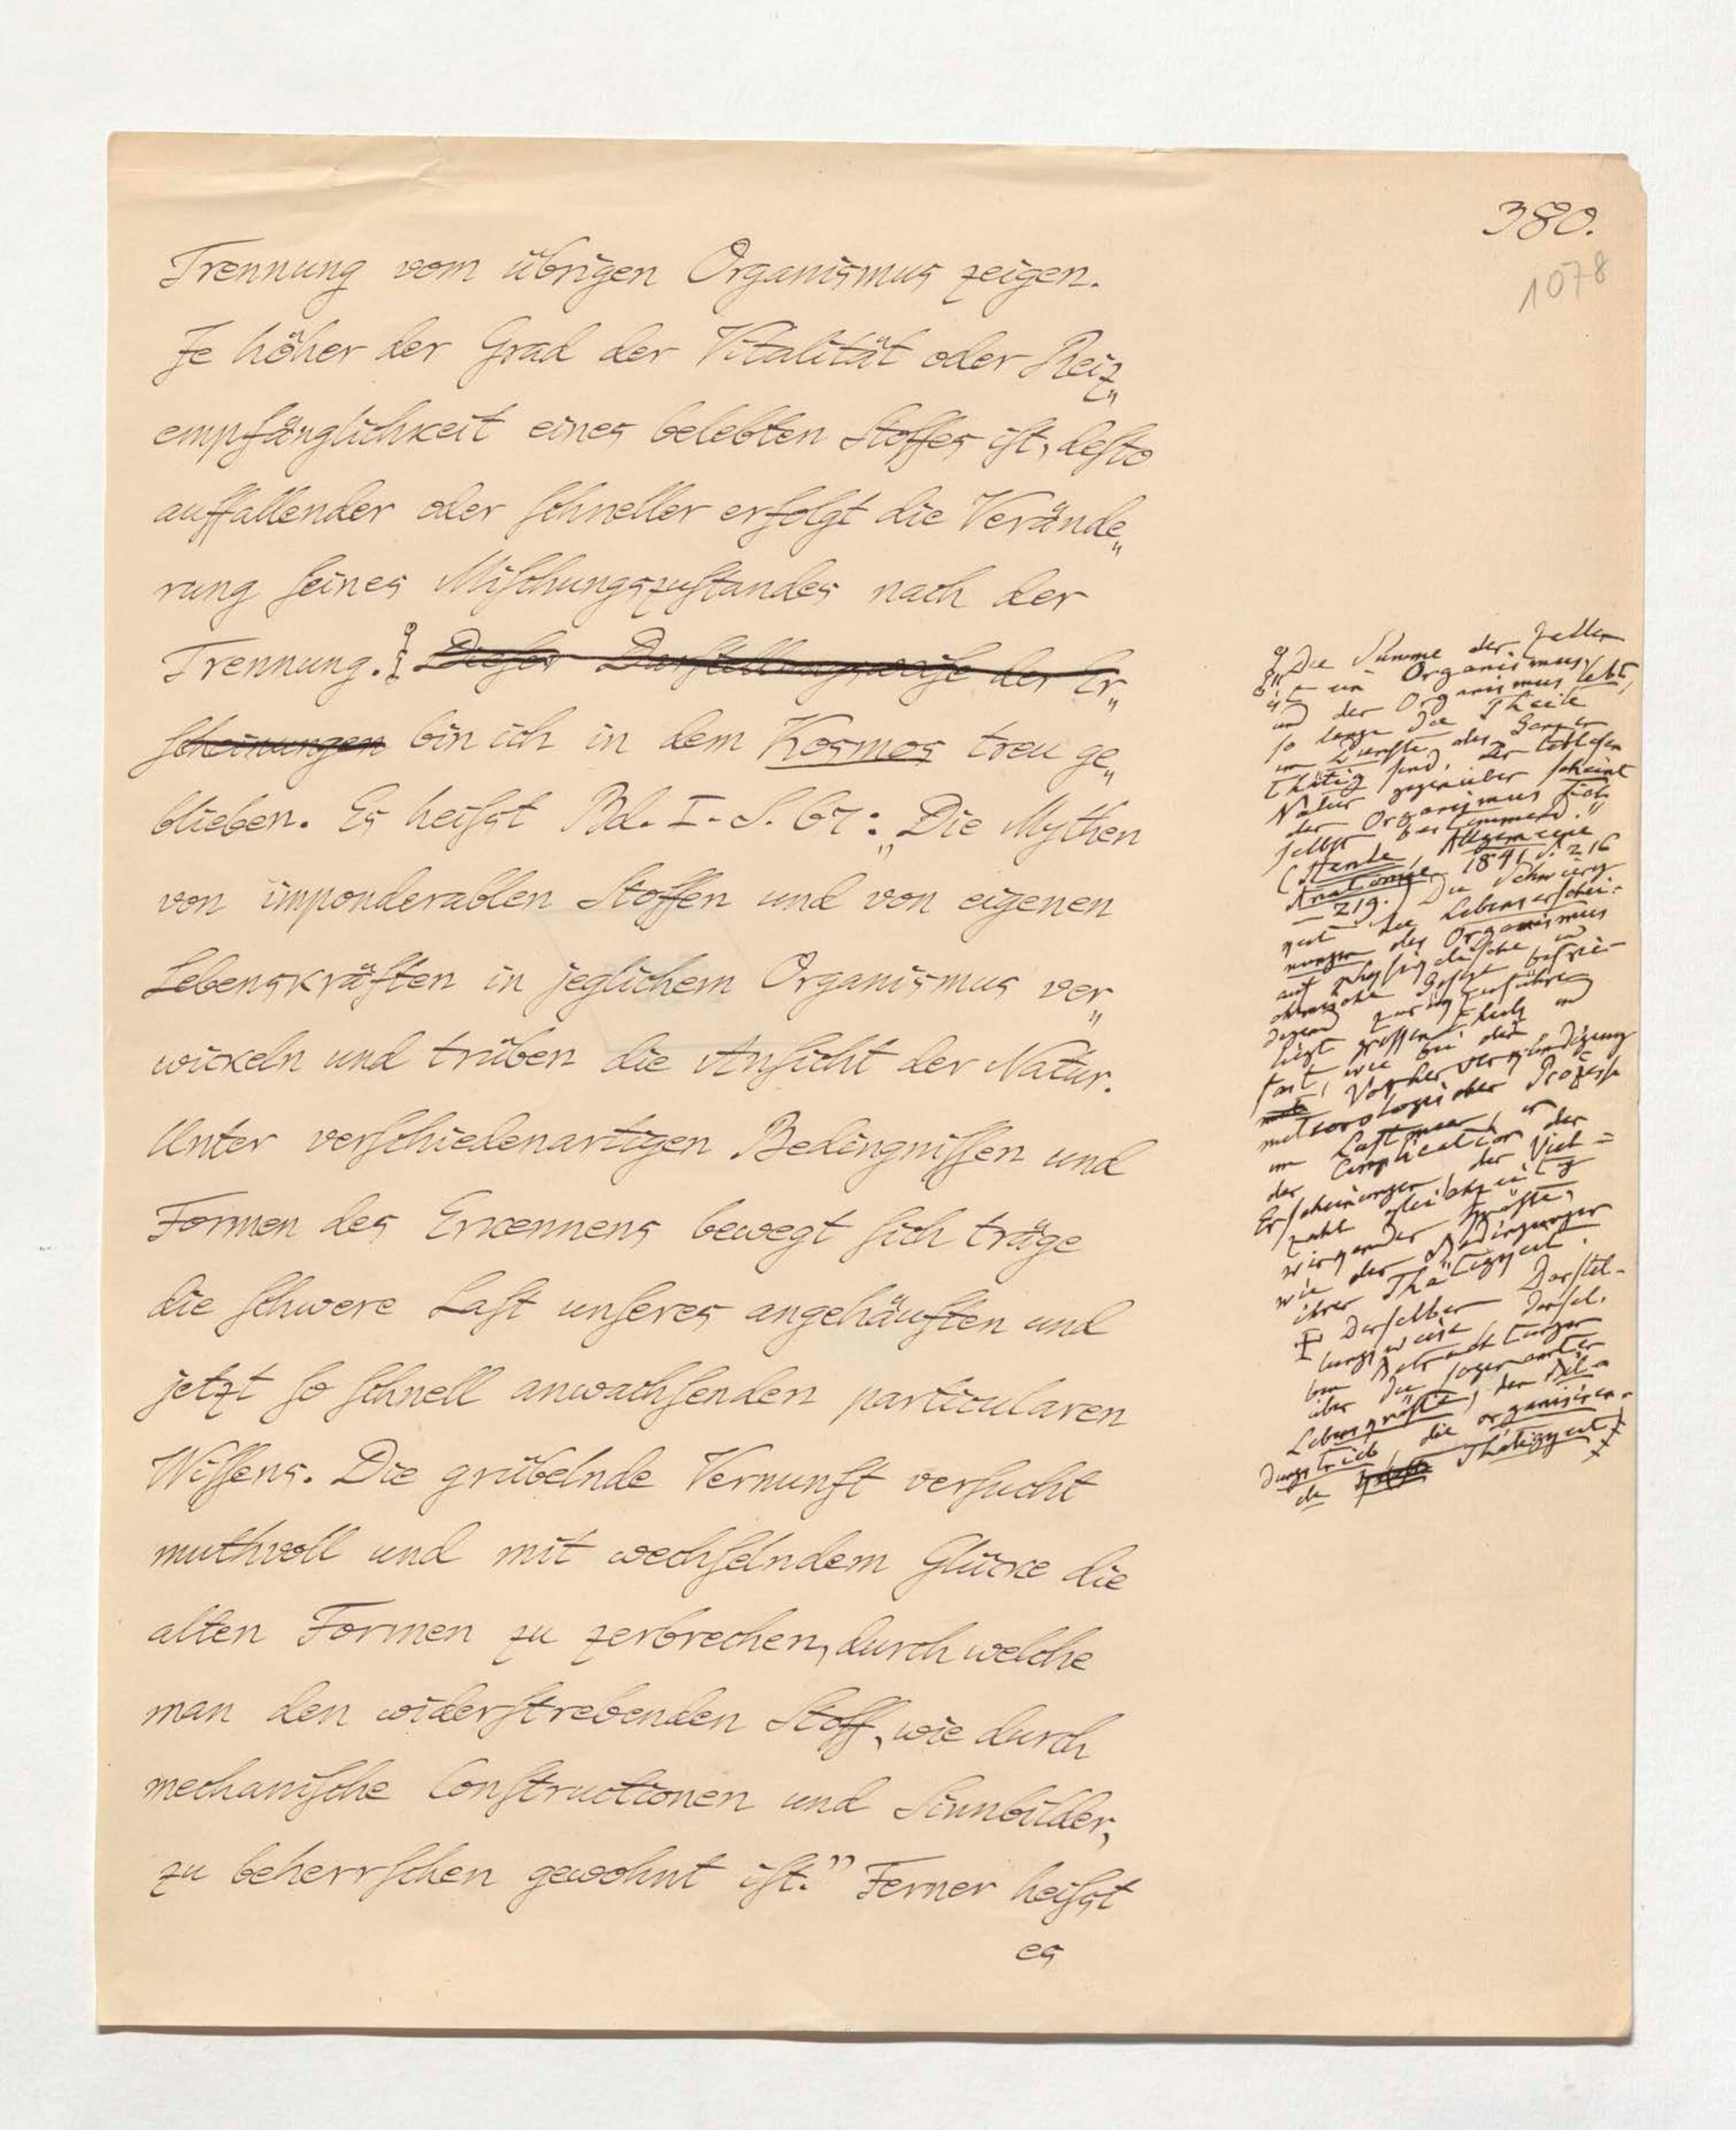 380.
1078
Trennung vom übrigen Organismus zeigen.
Je höher der Grad der Vitalität oder Reiz„
empfänglichkeit eines belebten Stoffes ist, desto
auffallender oder schneller erfolgt die Verände„
rung seines Mischungszustandes nach der
Trennung. Dieser Darstellungsweise der Er„
scheinungen bin ich in dem Kosmos treu ge„
blieben. Es heißt Bd. I. S. 67: „Die Mythen
von imponderablen Stoffen und von eigenen
Lebenskräften in jeglichem Organismus ver„
wickeln und trüben die Ansicht der Natur.
Unter verschiedenartigen Bedingnissen und
Formen des Erkennens bewegt sich träge
die schwere Last unseres angehäuften und
jetzt so schnell anwachsenden particularen
Wissens. Die grübelnde Vernunft versucht
muthvoll und mit wechselndem Glücke die
alten Formen zu zerbrechen, durch welche
man den widerstrebenden Stoff, wie durch
mechanische Constructionen und Sinnbilder,
zu beherrschen gewohnt ist.” Ferner heißt
es
Die Summe der Zellen
ist ein Organismus,
und der Organismus lebt,
so lange die Theile
im Dienste des Ganzen
thätig sind. Der leblosen
Natur gegenüber scheint
der Organismus sich
selbst bestimmend.”
(Henle, Allgemeine
Anatomie 1841 S. 216
– 219.) Die Schwierig
keit die Lebenserschei-
nungen des Organismus
auf physikalische und
chemische Gesetze befrie-
digend zurückzuführen
liegt grossentheils und
fast, wie bei der
Vorherverkündigung
meteorologischer Prozesse
im Luftmeer, in
der Complication der
Erscheinungen, der Viel=
zahl gleichzeitig
wirkender Kräfte,
wie der Bedingungen
ihrer Thätigkeit.
Derselben Darstel-
lungsweise, densel.
ben Betrachtungen
über die sogenannten
Lebenskräfte, den Bil-
dungstrieb, die organisiren-
de Thätigkeit